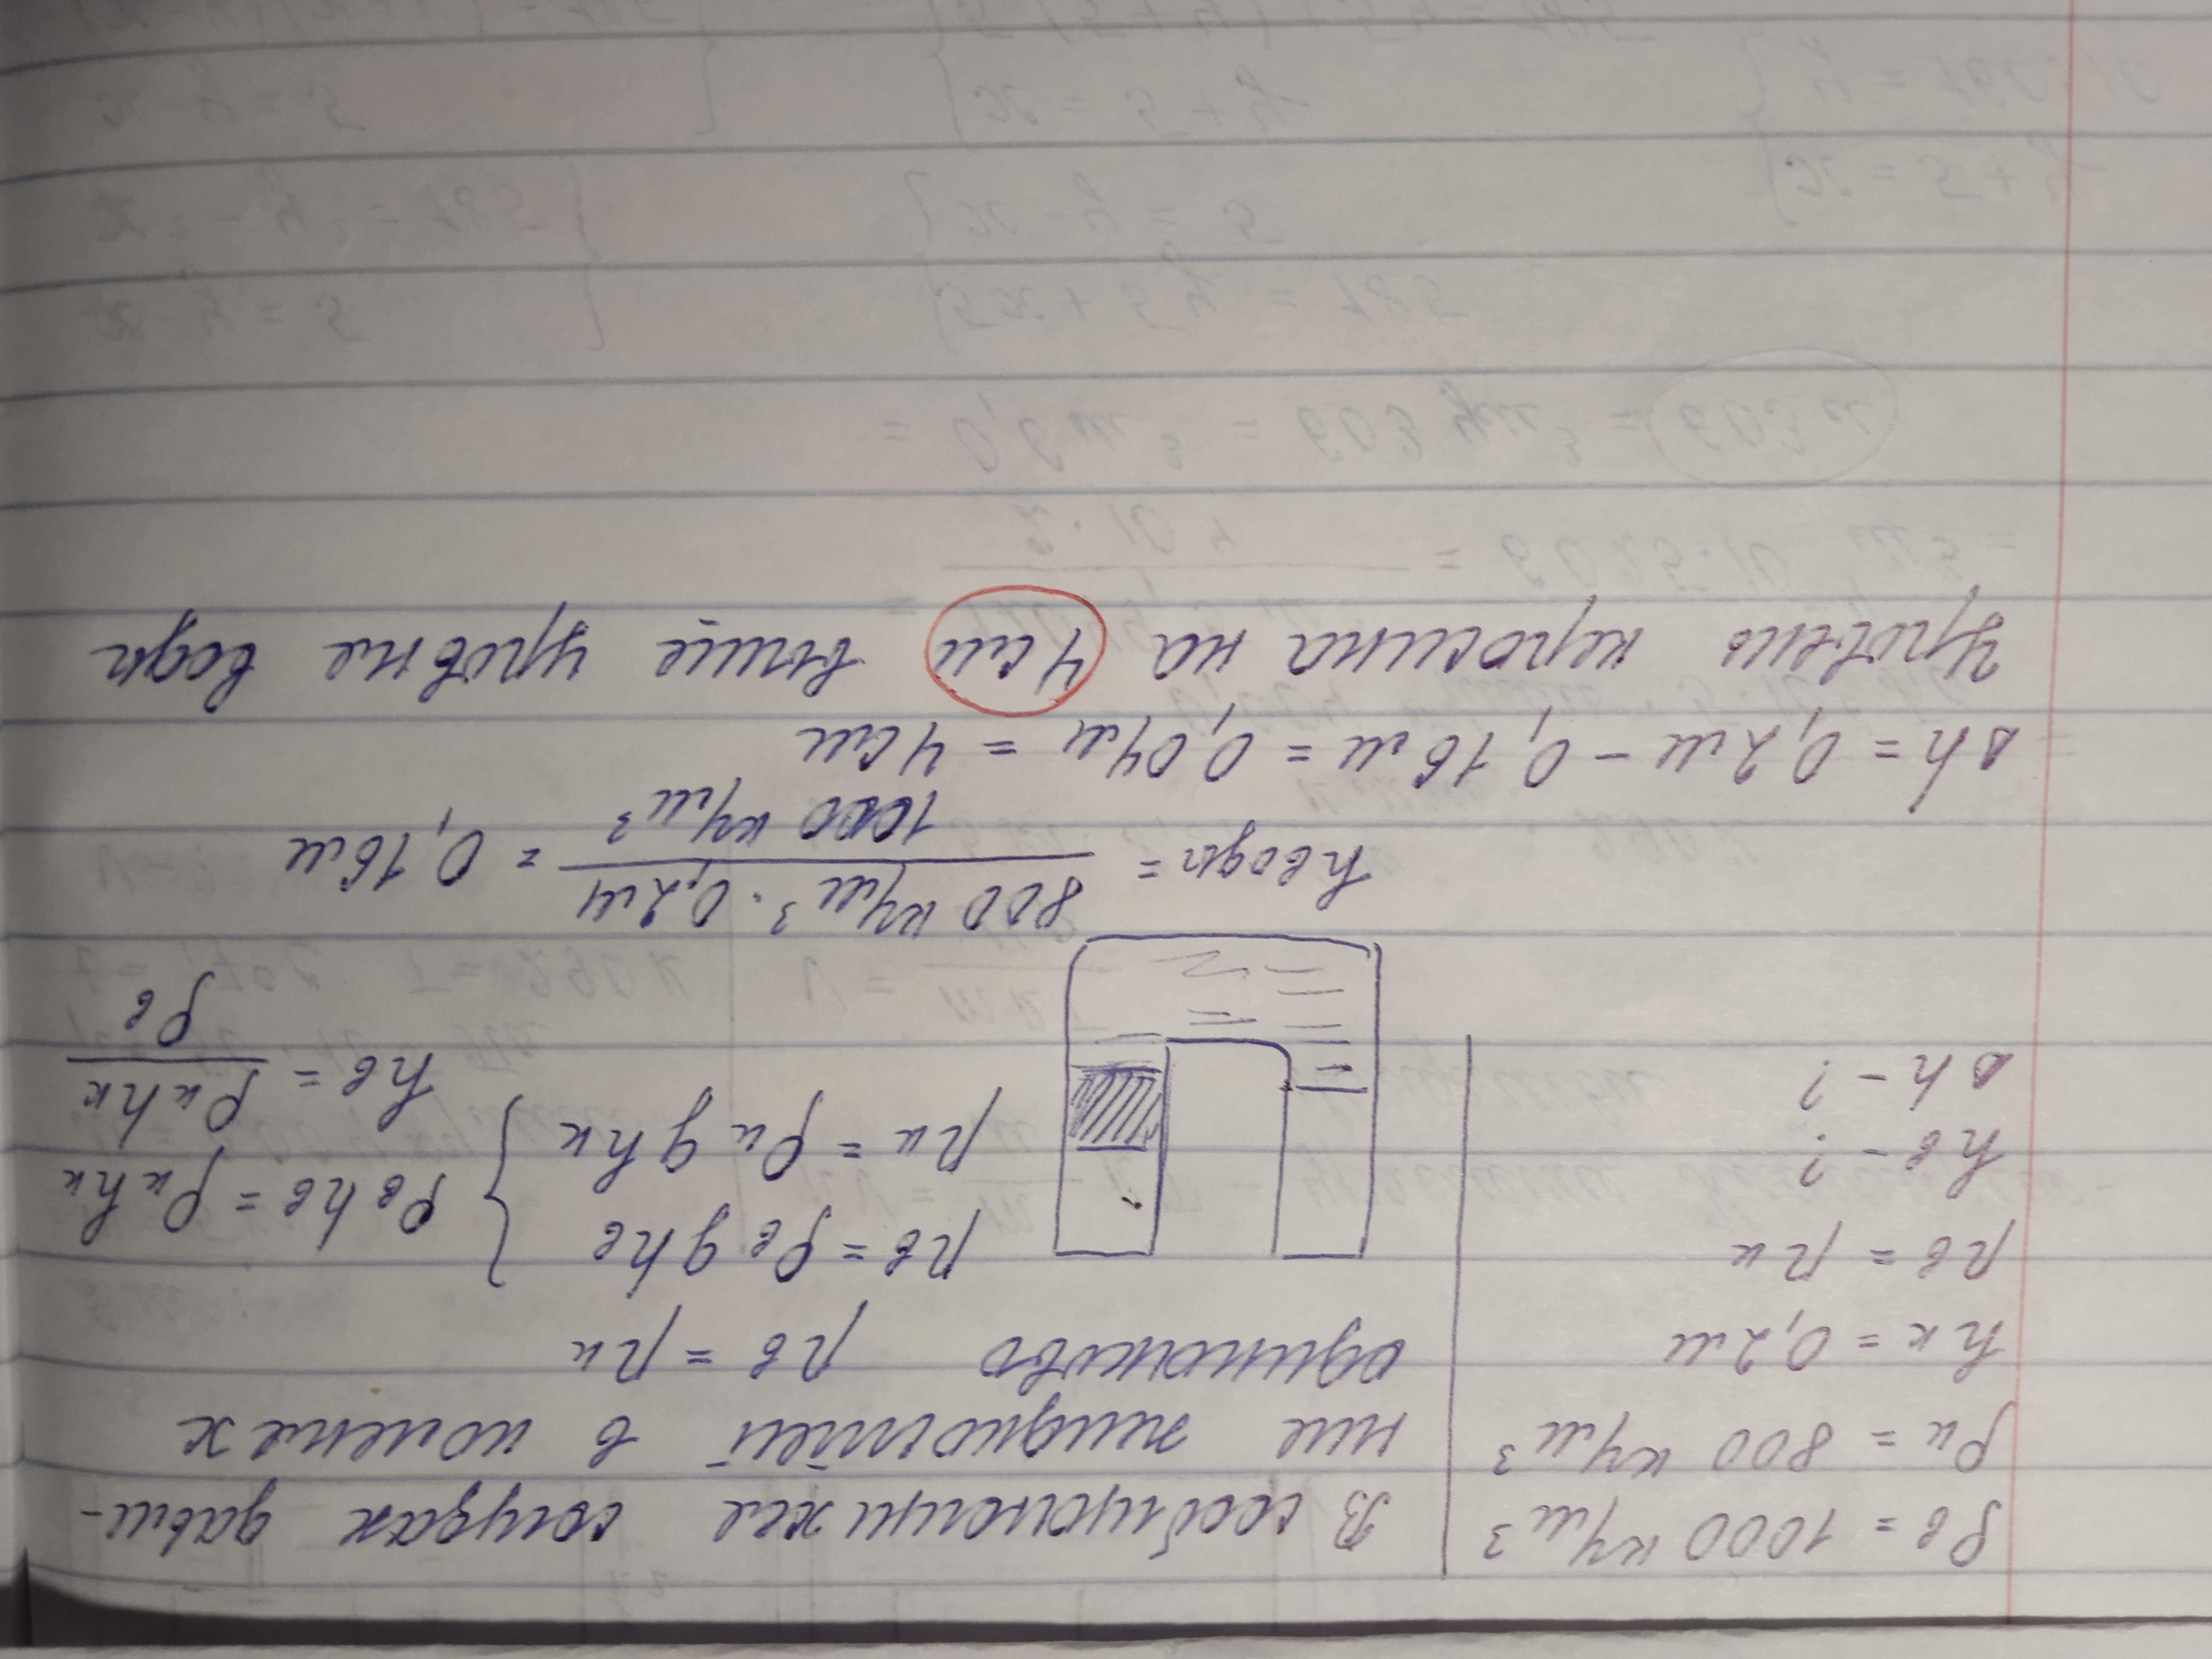 ρв = 1000 кг/м³
ρк = 800 кг/м³
hк = 0,2м
pв = pк
hв - ?
Δh - ?
В сообщающихся сосудах давле-
ние жидкостей в коленах
одинаково pв = pк
pв = ρв g hв
pк = ρк g hк
ρв hв = ρк hк
hв = ρк hк / ρв
hводы = 800 кг/м³ · 0,2м / 1000 кг/м³ = 0,16м
Δh = 0,2м - 0,16м = 0,04м = 4см
Уровень керосина на 4см выше уровне воды